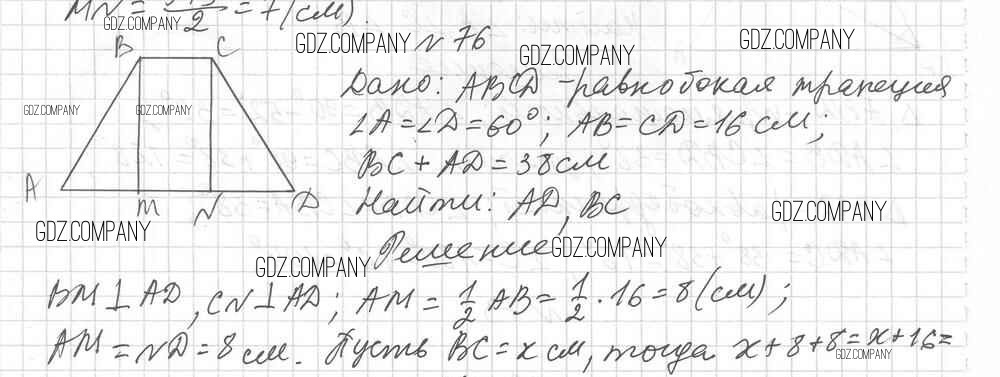 MN = /2 = 7 (см).
GDZ.COMPANY
GDZ.COMPANY № 76
GDZ.COMPANY
GDZ.COMPANY
B C
Дано: ABCD - равнобокая трапеция
GDZ.COMPANY GDZ.COMPANY
∠A = ∠D = 60°; AB = CD = 16 см;
BC + AD = 38 см
A M N D
Найти: AD, BC
GDZ.COMPANY
GDZ.COMPANY
Решение:
GDZ.COMPANY
GDZ.COMPANY
BM ⊥ AD, CN ⊥ AD; AM = 1/2 AB = 1/2 · 16 = 8 (см);
AM = ND = 8 см. Пусть BC = x см, тогда x + 8 + 8 = x + 16 =
GDZ.COMPANY